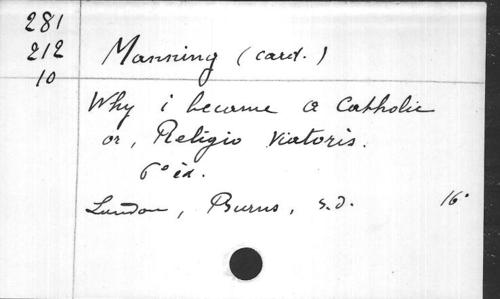 281
212
10
Manning (card.)
Why i became a Catholic
or, Religio Viatoris.
6° ed.
London, Burns, s.d. 16°